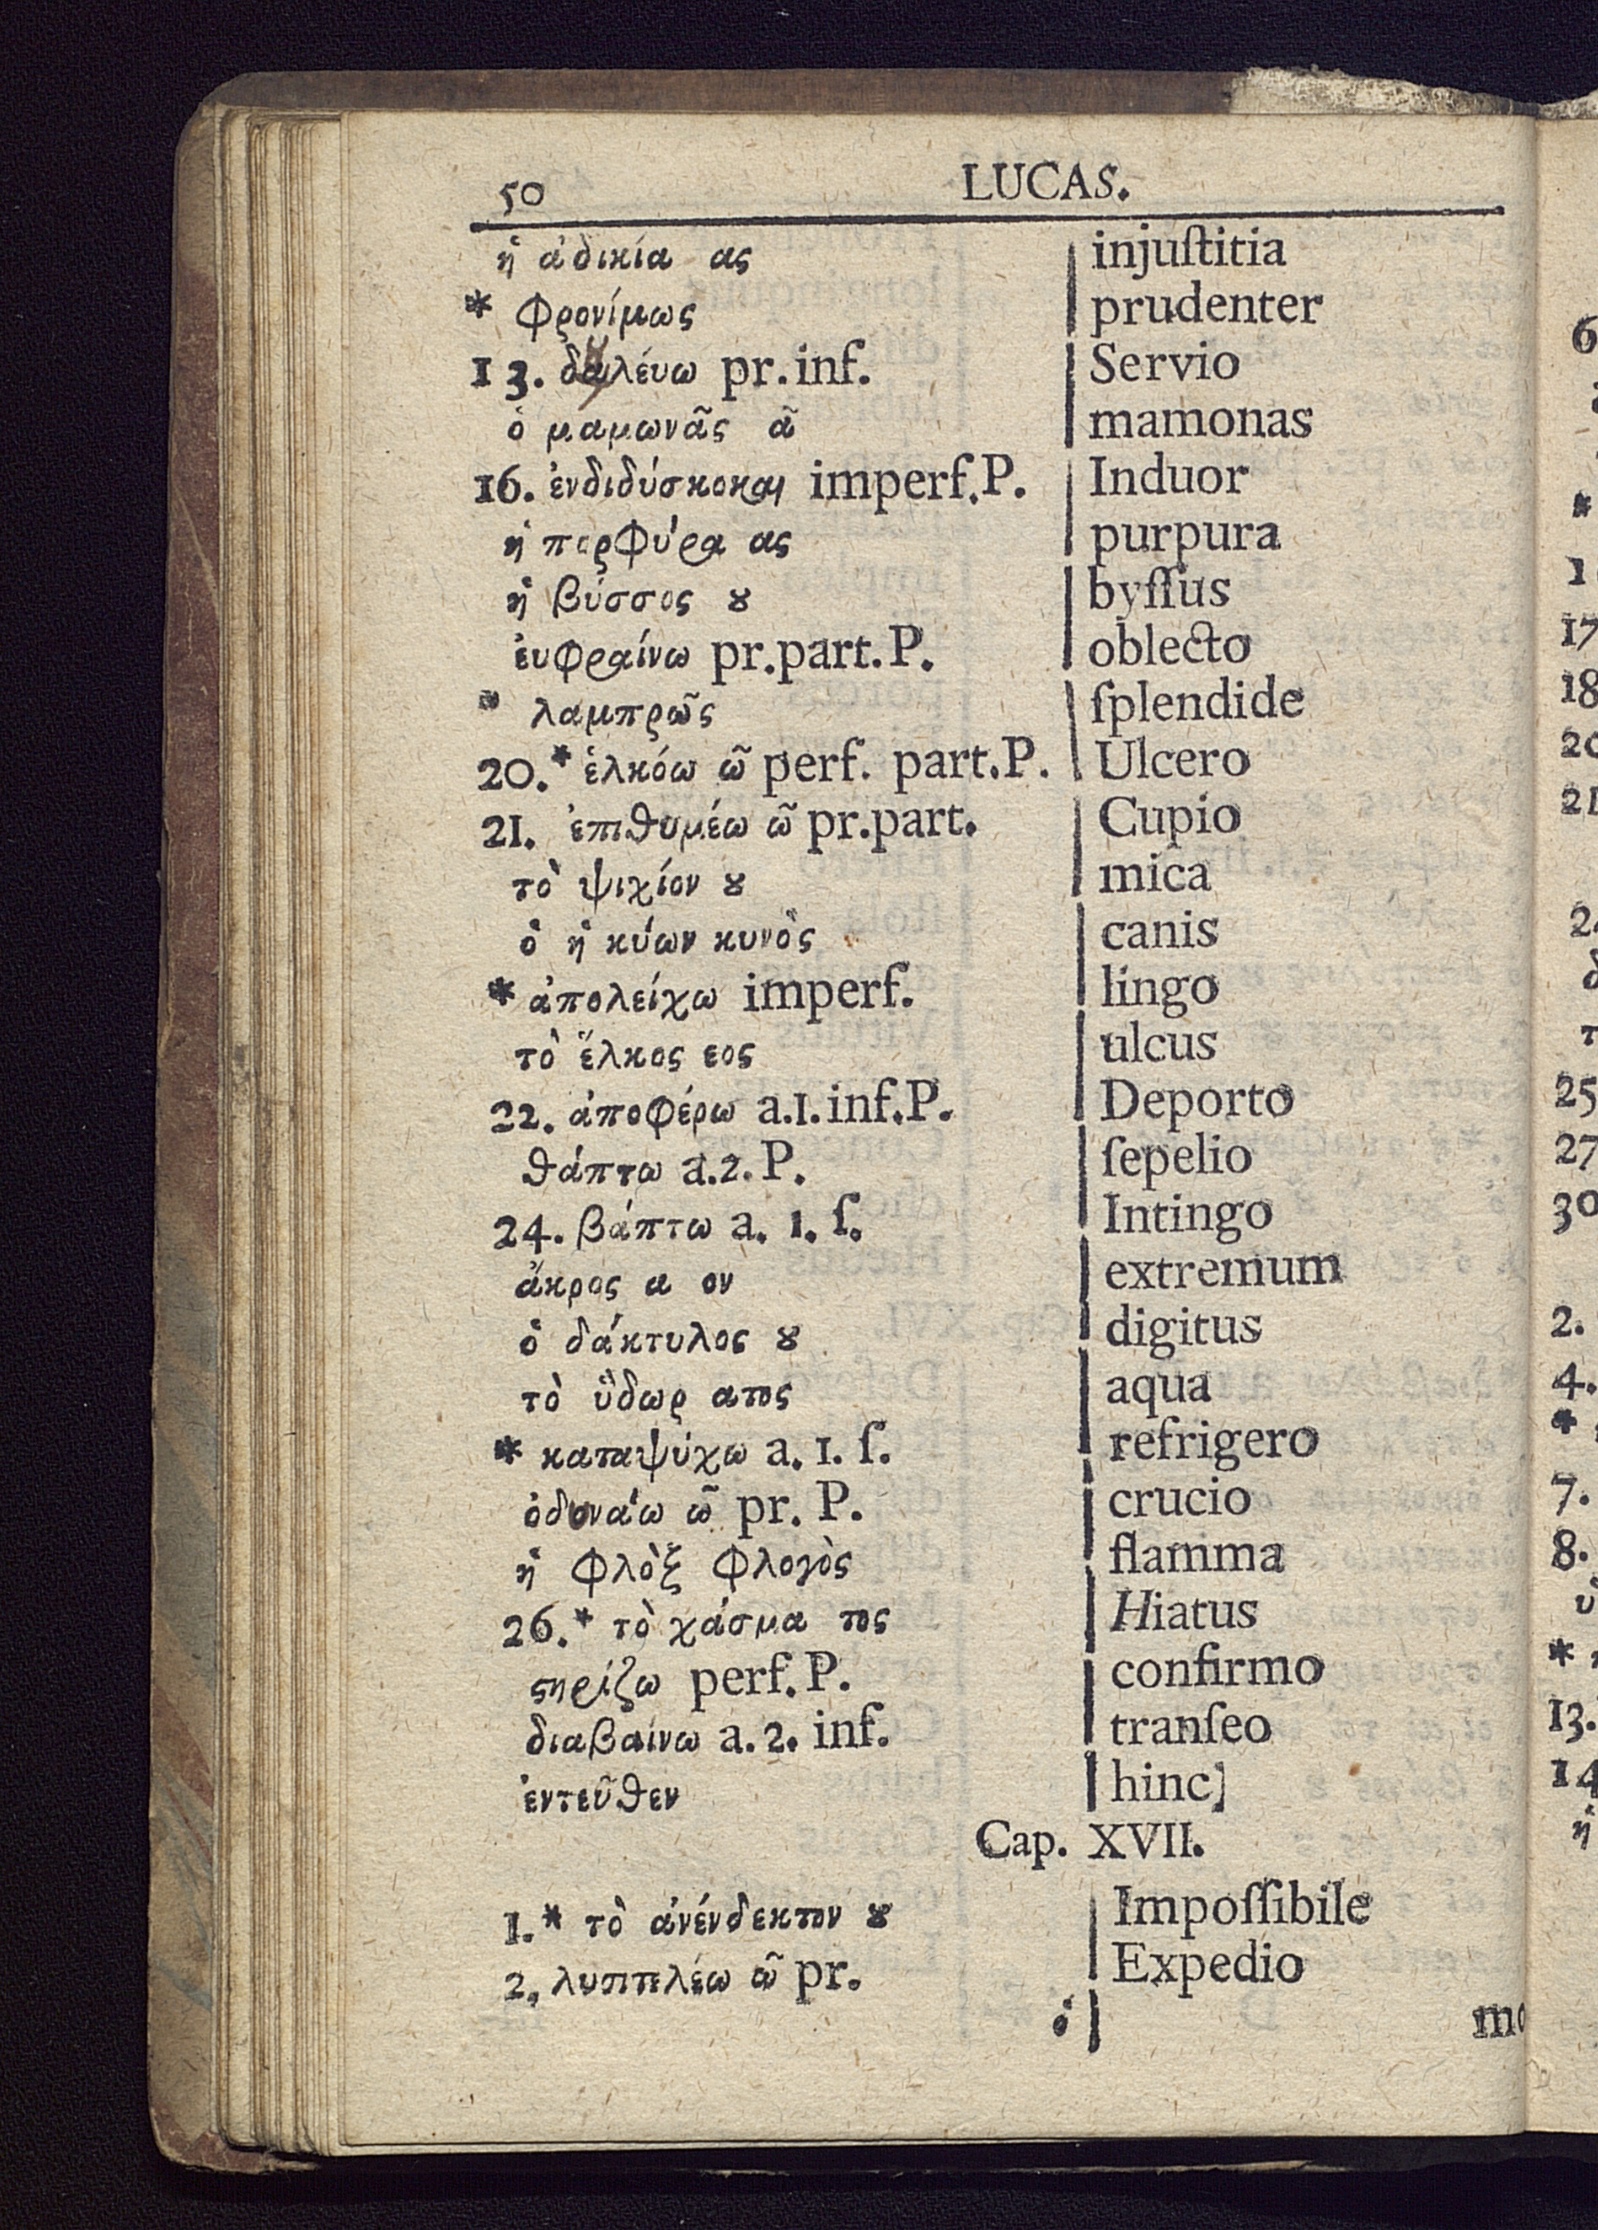 50 LUCAS.
ἡ ἀδικία ας injuſtitia
* φρονίμως prudenter
13. δȣλέυω pr. inf. Servio
ὁ μαμωνᾶς ᾶ mamonas
16. ἐνδιδύσκοκαι imperf. P. Induor
ἡ πορφύρα ας purpura
ἡ βύσσος ȣ byſſus
ἐυφραίνω pr. part. P. oblecto
* λαμπρῶς ſplendide
20.* ἑλκόω ῶ perf. part. P. Ulcero
21. ἐπιθυμέω ῶ pr. part. Cupio
τὸ ψιχίον ȣ mica
ὁ ἡ κύων κυνὸς canis
* ἀπολείχω imperf. lingo
τὸ ἕλκος εος ulcus
22. ἀποφέρω a. 1. inf. P. Deporto
θάπτω a. 2. P. ſepelio
24. βάπτω a. 1. ſ. Intingo
ἄκρος α ον extremum
ὁ δάκτυλος ȣ digitus
τὸ ὕδωρ ατος aqua
* καταψύχω a. 1. ſ. refrigero
ὀδυνάω ῶ pr. P. crucio
ἡ φλὸξ φλογὸς flamma
26.* τὸ χάσμα τος Hiatus
ϛηρίζω perf. P. confirmo
διαβαίνω a. 2. inf. tranſeo
ἐντεῦθεν hinc]
Cap. XVII.
1.* τὸ ἀνένδεκτον ȣ Impoſſibile
2, λυσιτελέω ῶ pr. Expedio
ὁ